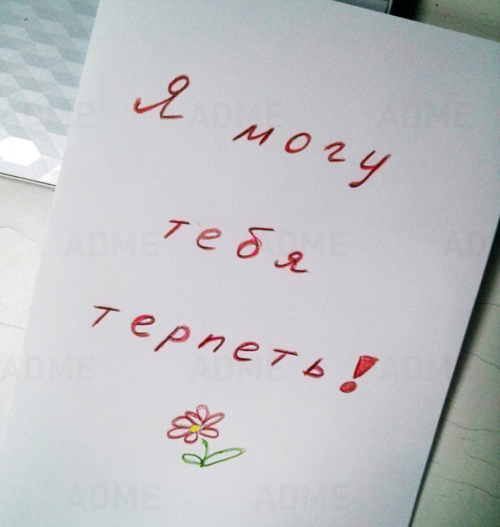 Я могу
тебя
терпеть!
ADME ADME ADME
ADME ADME AD
ADME ADME ADME
ADME ADME